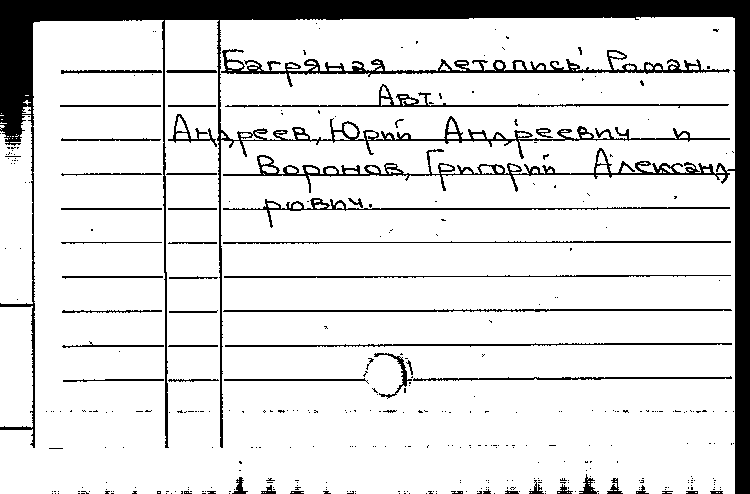 Багряная летопись. Роман.
Авт.:
Андреев, Юрий Андреевич и
Воронов, Григорий Александ-
рович.